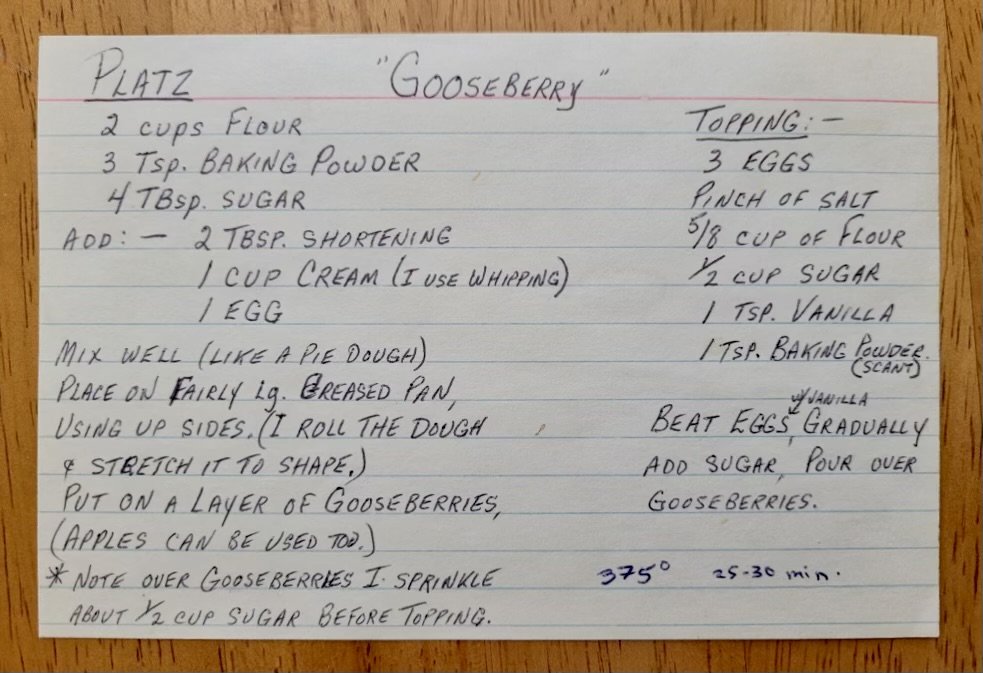 PLATZ "GOOSEBERRY"
2 CUPS FLOUR
3 TSP. BAKING POWDER
4 TBSP. SUGAR
ADD: — 2 TBSP. SHORTENING
1 CUP CREAM (I USE WHIPPING)
1 EGG
MIX WELL (LIKE A PIE DOUGH)
PLACE ON FAIRLY LG. GREASED PAN,
USING UP SIDES. (I ROLL THE DOUGH
& STRETCH IT TO SHAPE.)
PUT ON A LAYER OF GOOSEBERRIES,
(APPLES CAN BE USED TOO.)
* NOTE OVER GOOSEBERRIES I SPRINKLE
ABOUT 1/2 CUP SUGAR BEFORE TOPPING.
TOPPING: —
3 EGGS
PINCH OF SALT
5/8 CUP OF FLOUR
1/2 CUP SUGAR
1 TSP. VANILLA
1 TSP. BAKING POWDER.
(SCANT)
W/VANILLA
BEAT EGGS, GRADUALLY
ADD SUGAR, POUR OVER
GOOSEBERRIES.
375° 25-30 min.